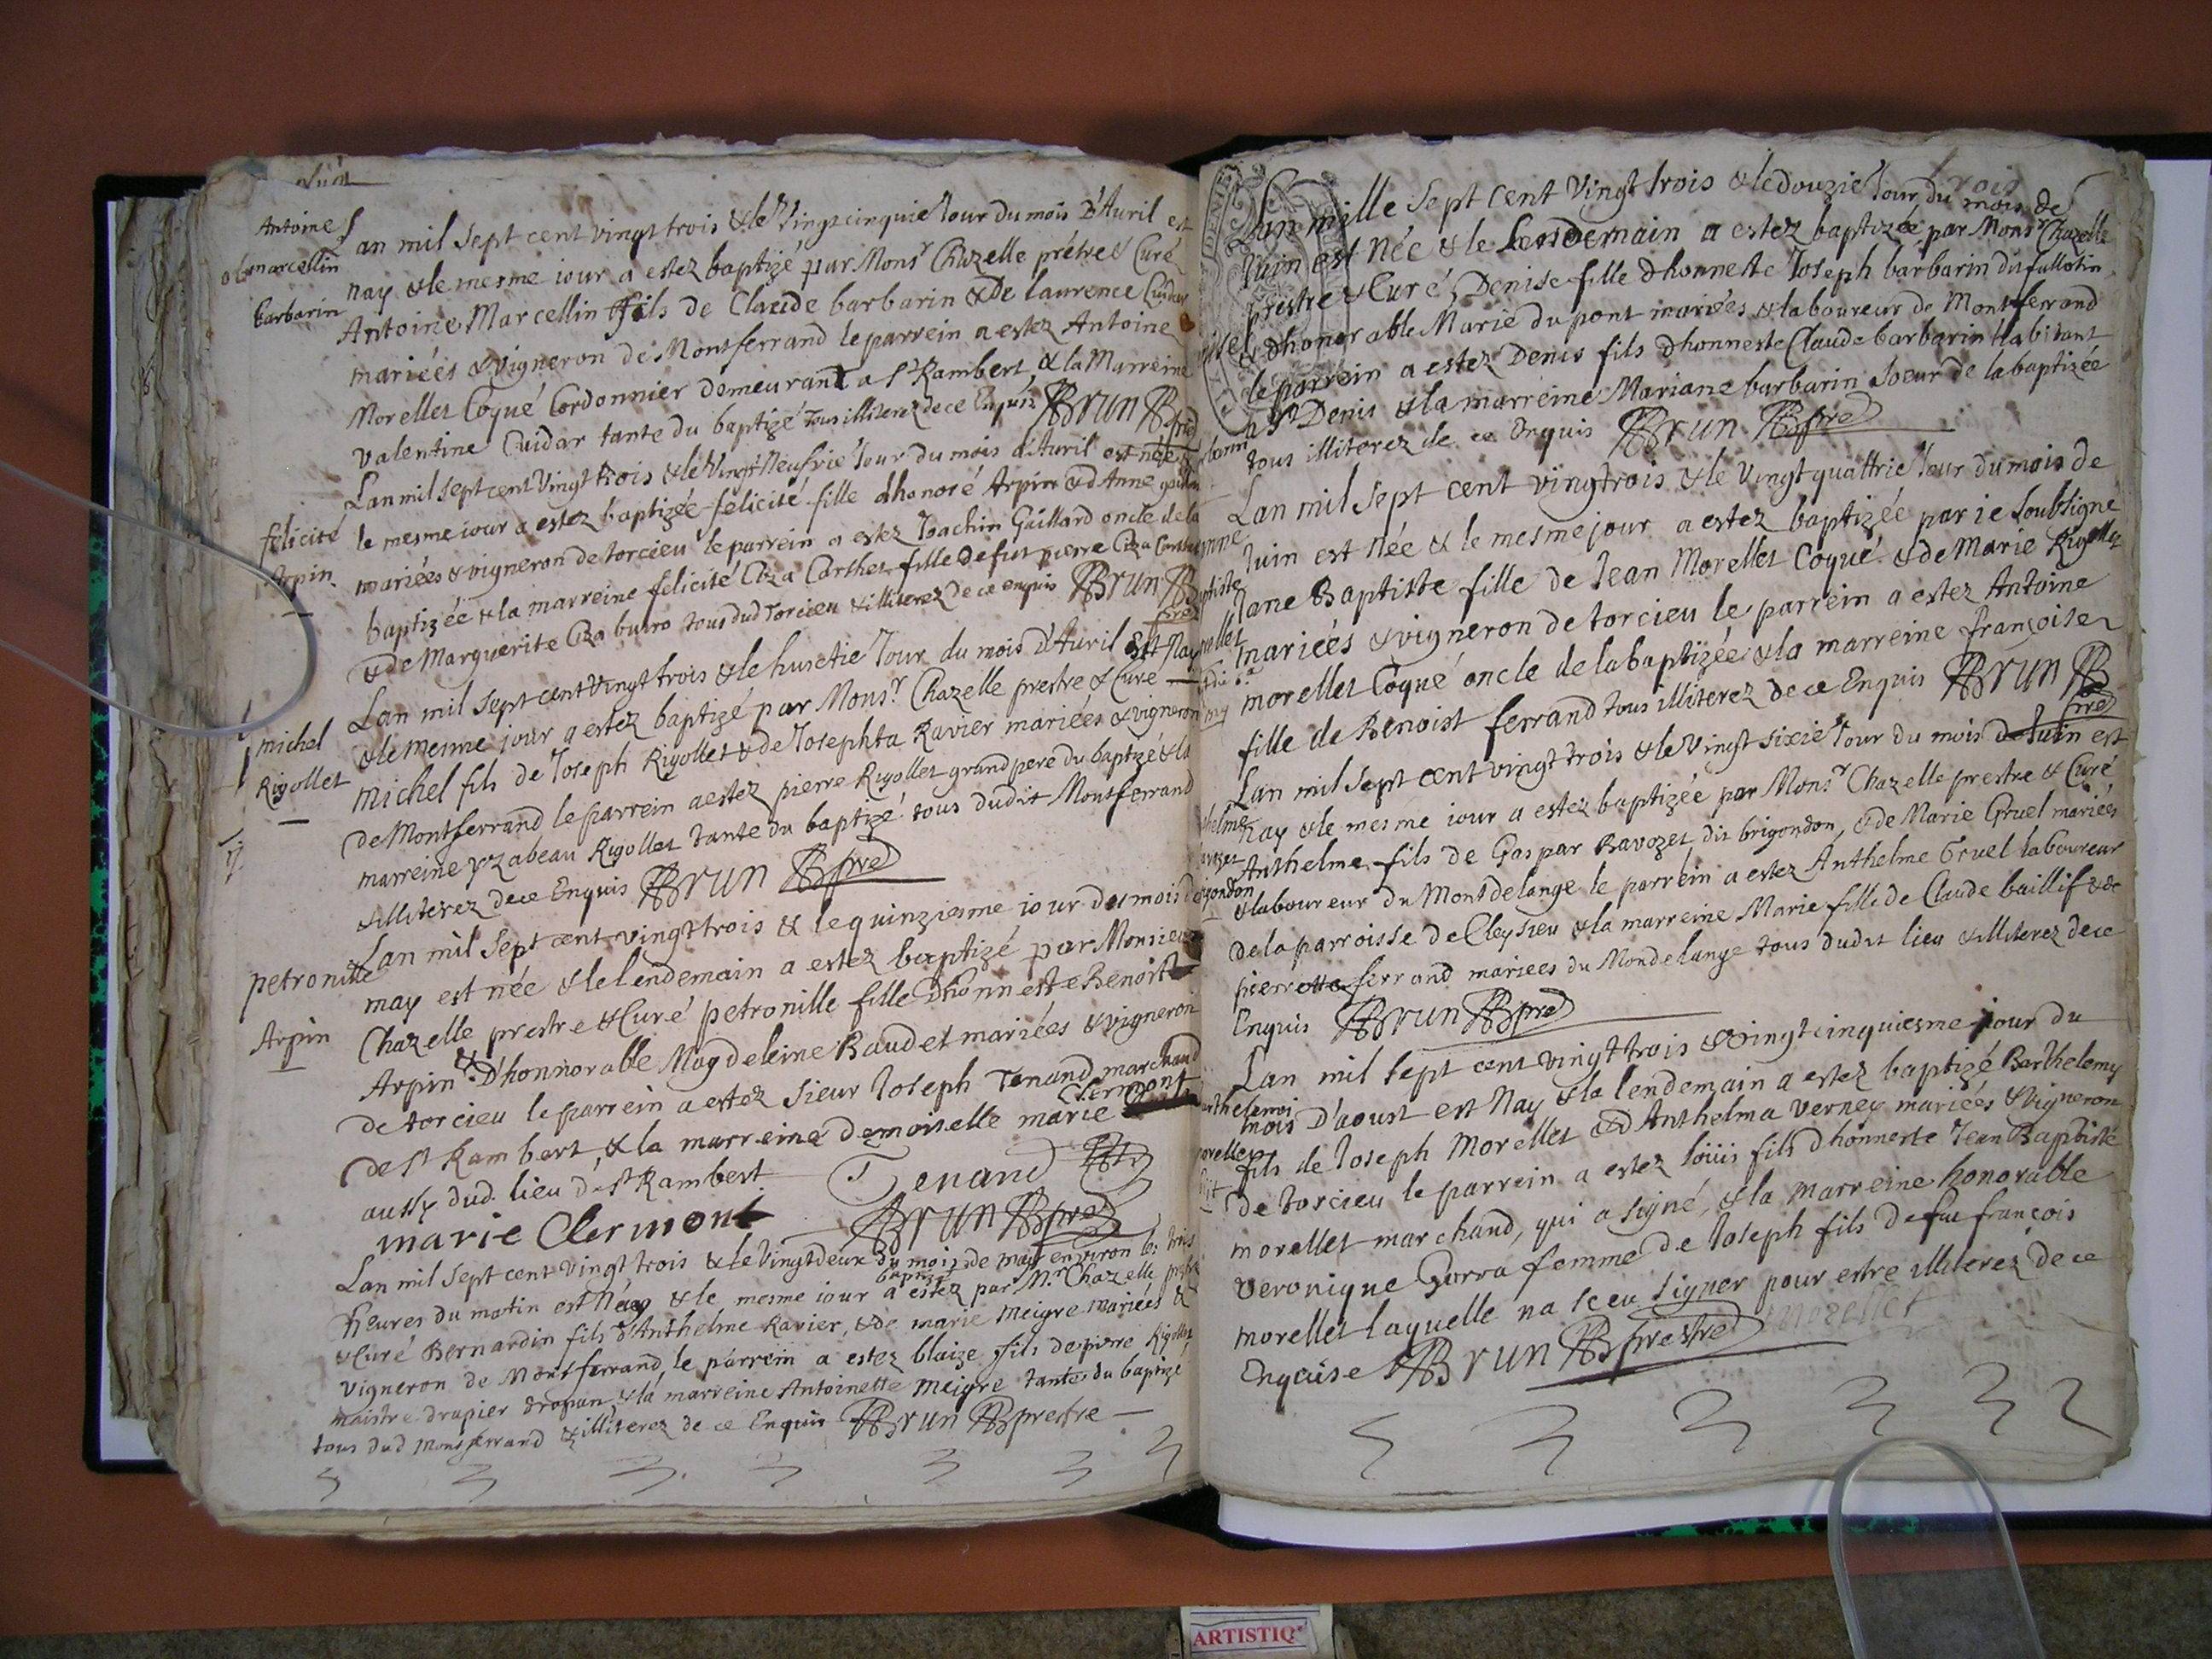 Antoine
marcellin
barbarin
Lan mil sept cent vingt trois & le Vingtcinquie Jour du mois d'Auril est
nay & le mesme iour a estez baptizé par Monsr Chazelle prétre & Curé
Antoine Marcellin ffils de Claude barbarin & De laurence Cuidar
mariéés & vigneron de Montferrand le parrein a estez Antoine
Morellet Coqué Cordonnier demeurant a St Rambert, & la Marreine
valentine Cuidar tante du baptizé tous illiterez de ce Enquis Brun pre
félicité
Arpin
Lan mil sept cent Vingt trois & le Vingt Neufvie Jour du mois d'Auril est née &
le mesme iour a estez baptizée félicité fille dhonoré Arpin & d'Anne
mariées & vigneron de torcieu le parrein a estez Joachin Gaillard oncle de la
baptizée & la marreine félicité Ciza Carthet fille de fut pierre Ciza
& de Marguerite Ciza burro tous dud Torcieu & illiterez de ce enquis Brun pre
michel
Rigollet
Lan mil sept cent Vingt trois & le huictie Jour du mois d'Auril Est Nay
& le mesme iour a estez baptizé par Monsr. Chazelle prestre & Curé
michel fils de Joseph Rigollet & de Josephta Ravier mariées & vigneron
de Montferrand le parrein a estez pierre Rigollet grand pere du baptizé & la
marreine yzabeau Rigollet tante du baptizé tous dudit Montferrand
& illiterez de ce Enquis Brun pre
petronille
Arpin
Lan mil sept cent vingt trois & le quinziesme iour du mois de
may est née & le lendemain a estez baptizé par Monsieur
Chazelle prestre & Curé petronille fille Dhonneste Benoist
Arpin & D'honnorable Magdeleine Baudet mariées & vigneron
de torcieu le parrein a estez Sieur Joseph Tenand marchand
de St Rambert, & la marreine demoiselle marie Clermont
aussy dud. lieu de St Rambert
Tenand
marie Clermont
Brun pre
Lan mil sept cent vingt trois & le Vingtdeux du mois de may environ les trois
heures du matin est Nay & le mesme iour a estez baptizé par Mr Chazelle
& Curé Bernardin fils d'Anthelme Ravier, & de marie meigre mariées &
vigneron de Montferrand le parrein a estez blaize fils de pierre Rigollet
maistre drapier drapan & la marreine Antoinette meigre tante du baptizé
tous dud Montferrand & illiterez de ce Enquis Brun prestre
Lan mille sept cent vingt trois & le douzie Jour du mois de
Juin est Née & le Lendemain a estez baptizéé par Monsr Chazelle
prestre & Curé, Denise fille dhonneste Joseph barbarin dit fullotin
& dhonorable Marie dupont mariées & laboureur de Montferrand
le parrein a estez Denis fils dhonneste Claude barbarin Habitant
a St Denis & la marreine Mariane barbarin Soeur de la baptizée
tous illiterez de ce Enquis Brun pre
Lan mil sept cent vingtrois & le vingt quattrie Jour du mois de
Juin est Née & le mesme jour a estez baptizée par ie soubsigne
Jane Baptiste fille de Jean Morellet Coqué & de Marie Rigollet
mariéés & vigneron de torcieu le parrein a estez Antoine
morellet Coqué oncle de la baptizée & la marreine françoise
fille de Benoist ferrand tous illiterez de ce Enquis Brun pre
Lan mil sept cent vingt trois & le Vingt sixie Jour du mois de Juin est
nay & le mesme iour a estez baptizée par Monsr Chazelle prestre & Curé
Anthelme fils de Gaspar Ravozet dit brigondon, & de Marie Gruel mariées
& laboureur du Montdelange le parrein a estez Anthelme Gruel laboureur
de la parroisse de Cleysieu & la marreine Marie fille de Claude baillif & de
pierrette ferrand mariees du Mondelange tous dudit lieu & illiterez de ce
Enquis Brun pre
Lan mil sept cent vingt trois & Vingtcinquiesme jour du
mois D'aoust est Nay & la lendemain a estez baptizé Barthelemy
fils de Joseph Morellet & d'Anthelma Verney mariéés & Vigneron
de torcieu le parrein a estez loüis fils dhonneste Jean Baptiste
morellet marchand, qui a signé, & la marreine honorable
veronique Gorra femme de Joseph fils de fut françois
morellet laquelle na sceu signer pour estre illiterez de ce
Enquise Brun prestre morellet
ARTISTIQ